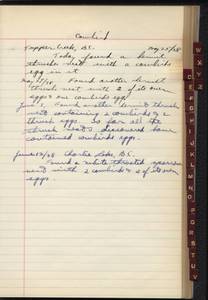 Cowbird
Tupper Creek, B.C. May 25/38
Today found a hermit
thrushs nest with a cowbirds
egg in it
May 31/38. Found another hermit
thrush nest with 2 of its own
eggs & one cowbirds egg.
June 5. Found another hermit thrush
nest containing 2 cowbirds & 2
thrush eggs. So far all the
thrush nests discovered have
contained cowbirds eggs.
June 12/38 Charlie Lake, B.C.
Found a white throated sparrow
nest with 2 cowbirds & 2 of its own
eggs.
W
X
Y
Z
C
E
F
G
H
I
J
K
L
M
N
O
P
Q
R
S
T
U
V